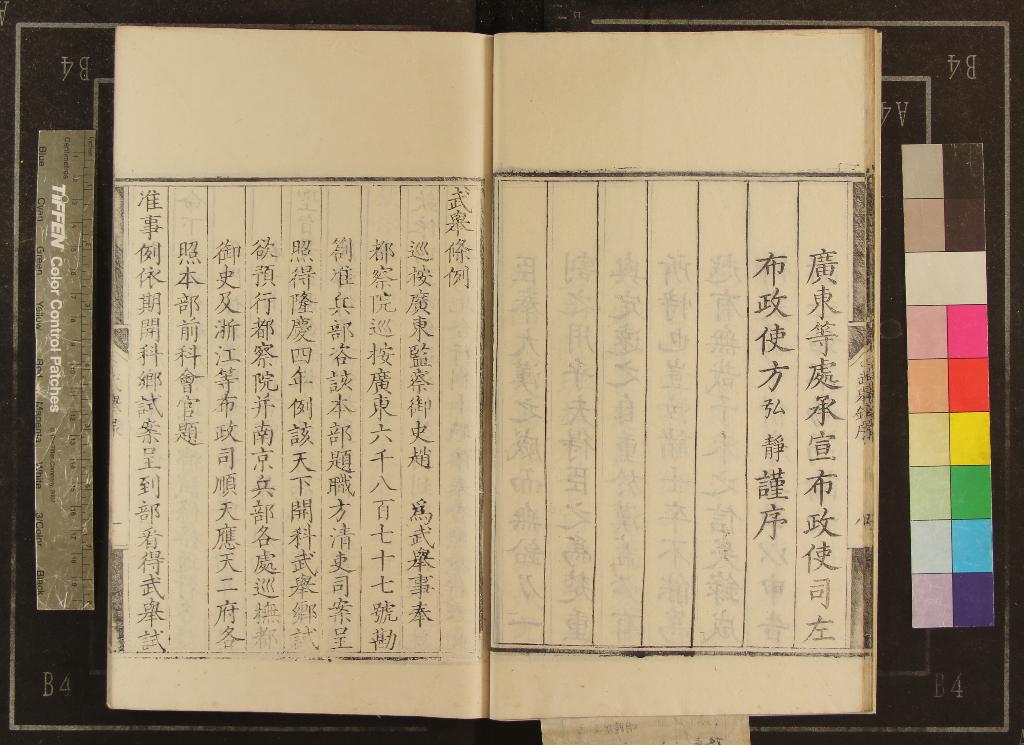 廣東等處承宣布政使司左
布政使方弘靜謹序
武舉錄序
武舉條例
巡按廣東監察御史趙 為武舉事奉
都察院巡按廣東六千八百七十七號勘
劄准兵部咨該本部題職方清吏司案呈
照得隆慶四年例該天下開科武舉鄉試
欲預行都察院并南京兵部各處巡撫都
御史及浙江等布政司順天應天二府各
照本部前科會官題
准事例依期開科鄉試案呈到部看得武舉試
TIFFEN Color Control Patches
Centimetres
Blue
Cyan
Green
Yellow
Red
Magenta
White
3/Color
Black
B4
B4
A4
B4
B4